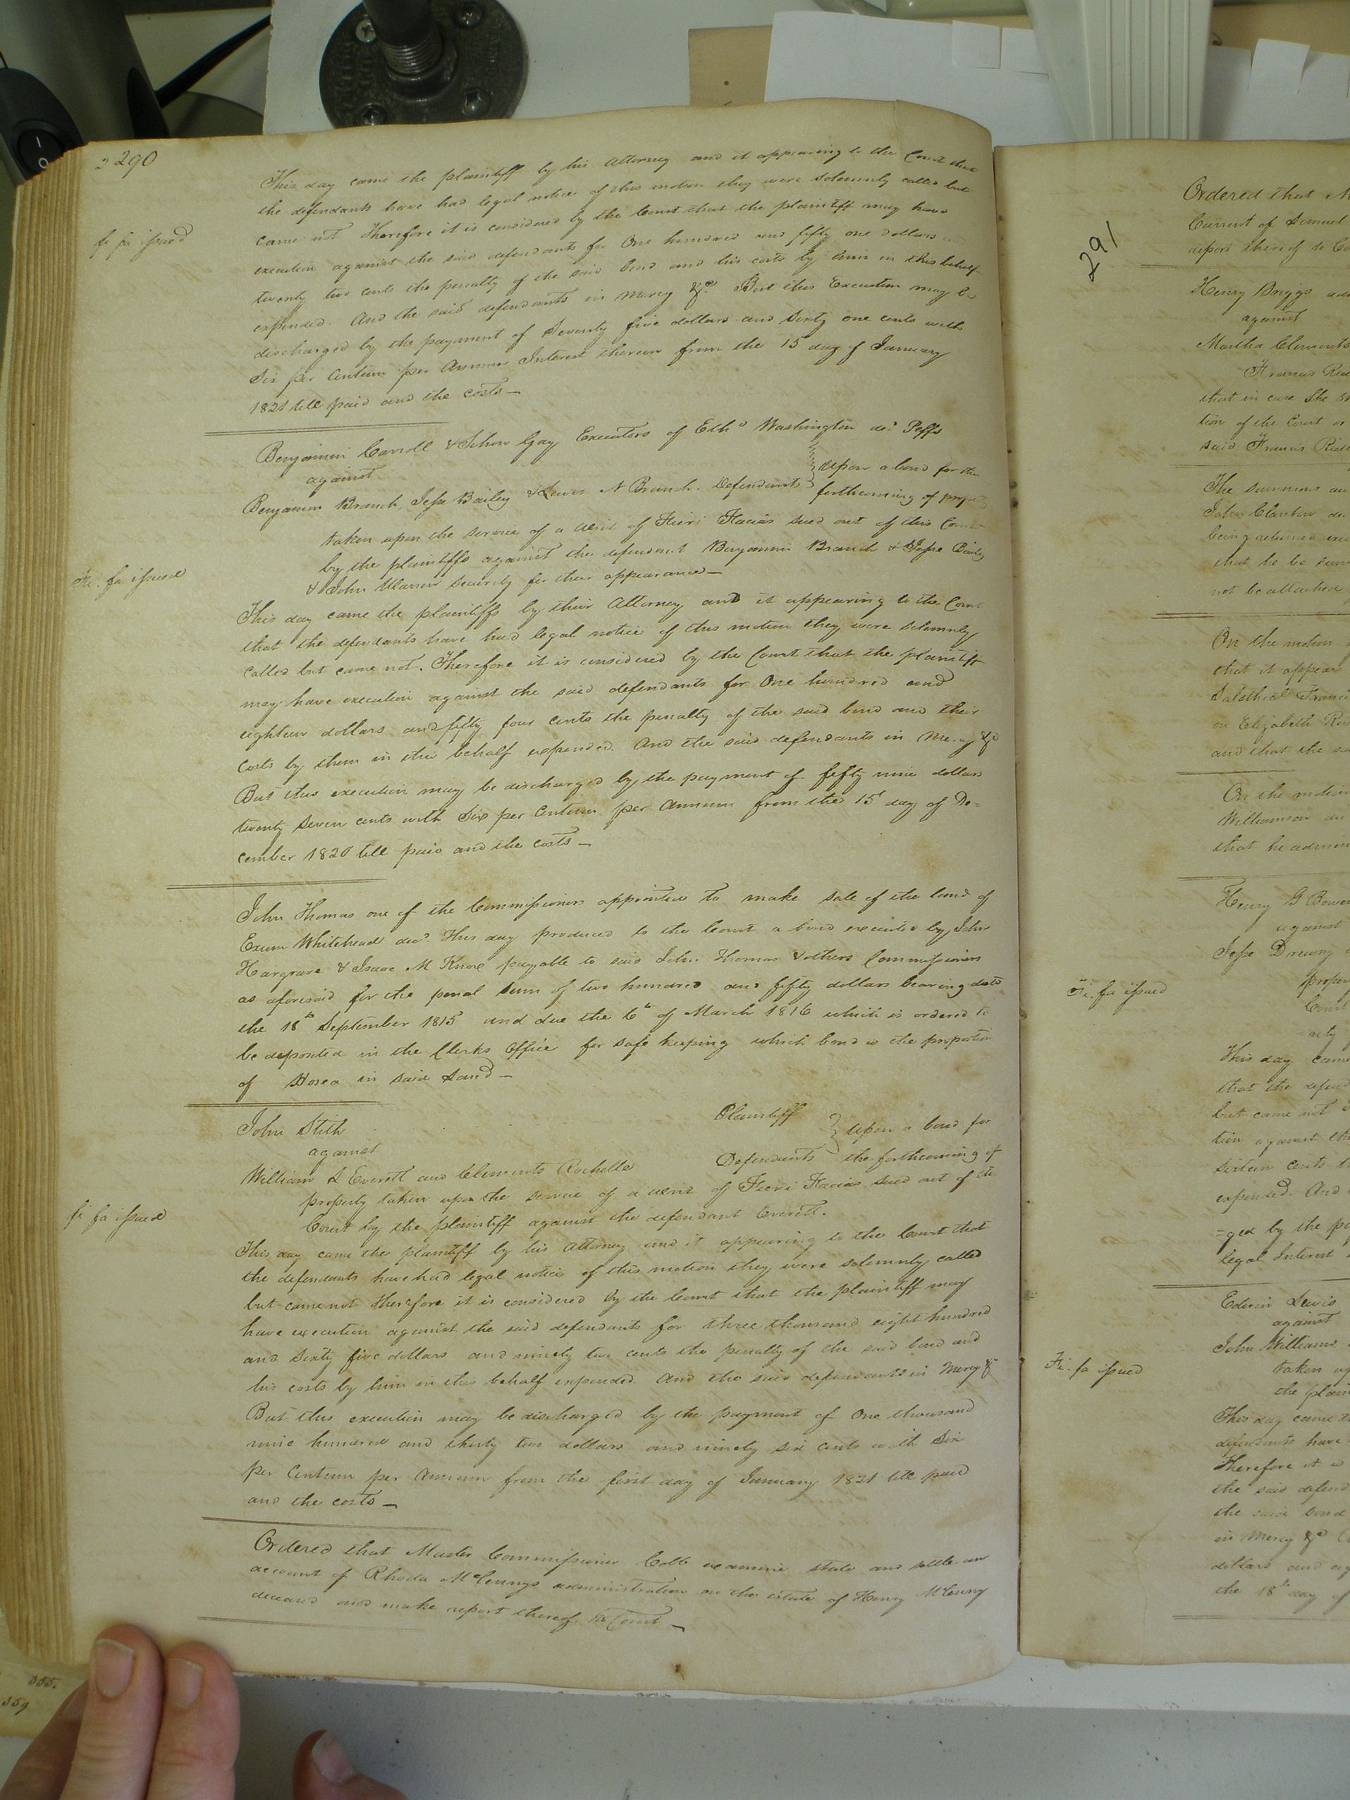 290
fi fa issued
This day came the plaintiff by his Attorney and it appearing to the Court that
the defendants have had legal notice of this motion they were Solemnly called but
came not Therefore it is considered by the Court that the plaintiff may have
execution against the said defendants for One hundred and fifty one dollars
twenty two cents the penalty of the said bond and his costs by him in this behalf
expended. And the said defendants in Mercy &c. But this Execution may be
discharged by the payment of Seventy five dollars and Sixty one cents with
Six per Centum per Annum Interest thereon from the 15 day of January
1821 till paid and the costs —
Benjamin Carroll & John Gay Executors of Eth'd Washington dec. Pltffs
against
upon a bond for the
Benjamin Branch, Jesse Bailey & Lewis N Branch Defendants
forthcoming of
taken upon the service of a writ of Fieri Facias sued out of this Court
by the plaintiffs against the defendant Benjamin Branch & Jesse Bailey
& John Warren security for their appearance —
Fi. fa issued
This day came the plaintiffs by their Attorney and it appearing to the Court
that the defendants have had legal notice of this motion they were solemnly
called but came not. Therefore it is considered by the Court that the plaintiff
may have execution against the said defendants for One hundred and
eighteen dollars and fifty four cents the penalty of the said bond and their
costs by them in this behalf expended. And the said defendants in Mercy &c
But this execution may be discharged by the payment of fifty nine dollars
twenty seven cents with Six per Centum per Annum from the 15 day of De-
cember 1820 till paid and the costs —
John Thomas one of the Commissioners appointed to make sale of the land of
Exum Whitehead dec'd This day produced to the Court a bond executed by John
Hargrave & Isaac M payable to said John Thomas & others Commissioners
as aforesaid for the penal sum of two hundred and fifty dollars bearing date
the 18th September 1815 and due the 6th of March 1816 which is ordered to
be deposited in the Clerks Office for safe keeping which bond is the proportion
of Hosea in said Land —
John Stith Plaintiff
against
upon a bond for
William Everett and Clements Rochelle Defendants the forthcoming of
property taken upon the service of a writ of Fieri Facias sued out of the
Court by the plaintiff against the defendant Everett.
fi fa issued
This day came the plaintiff by his Attorney and it appearing to the Court that
the defendants have had legal notice of this motion they were solemnly called
but came not Therefore it is considered by the Court that the plaintiff may
have execution against the said defendants for three thousand eight hundred
and Sixty five dollars and ninety two cents the penalty of the said bond and
his costs by him in this behalf expended. And the said defendants in Mercy &c
But this execution may be discharged by the payment of One thousand
nine hundred and thirty two dollars and ninety six cents with Six
per Centum per Annum from the first day of January 1821 till paid
and the costs —
Ordered that Master Commissioner Cobb examine state and settle an
account of Rhoda McLemy's administration on the estate of Henry McLemy
deceased and make report thereof to Court —
291
Ordered that
Current of Samuel
report thereof to
Henry Briggs
against
Martha Clements
Francis
that in case She
tion of the Court or
said Francis
The summons
John
being returned
that he be
not be attached
On the motion
that it appear
on Elizabeth
and that the
On the motion
Williamson
that he
Henry B Bowers
against
Jesse Drewry
Fi. fa issued
Court
This day came
that the
but came not
tion against the
sixteen cents
expended. And
-ged by the
legal Interest
Edwin Lewis
against
John Williams
Fi. fa issued
taken
the
This day came
defendants have
Therefore it is
the said
the said bond
in Mercy &c
dollars and
the 18th day of
355.
359